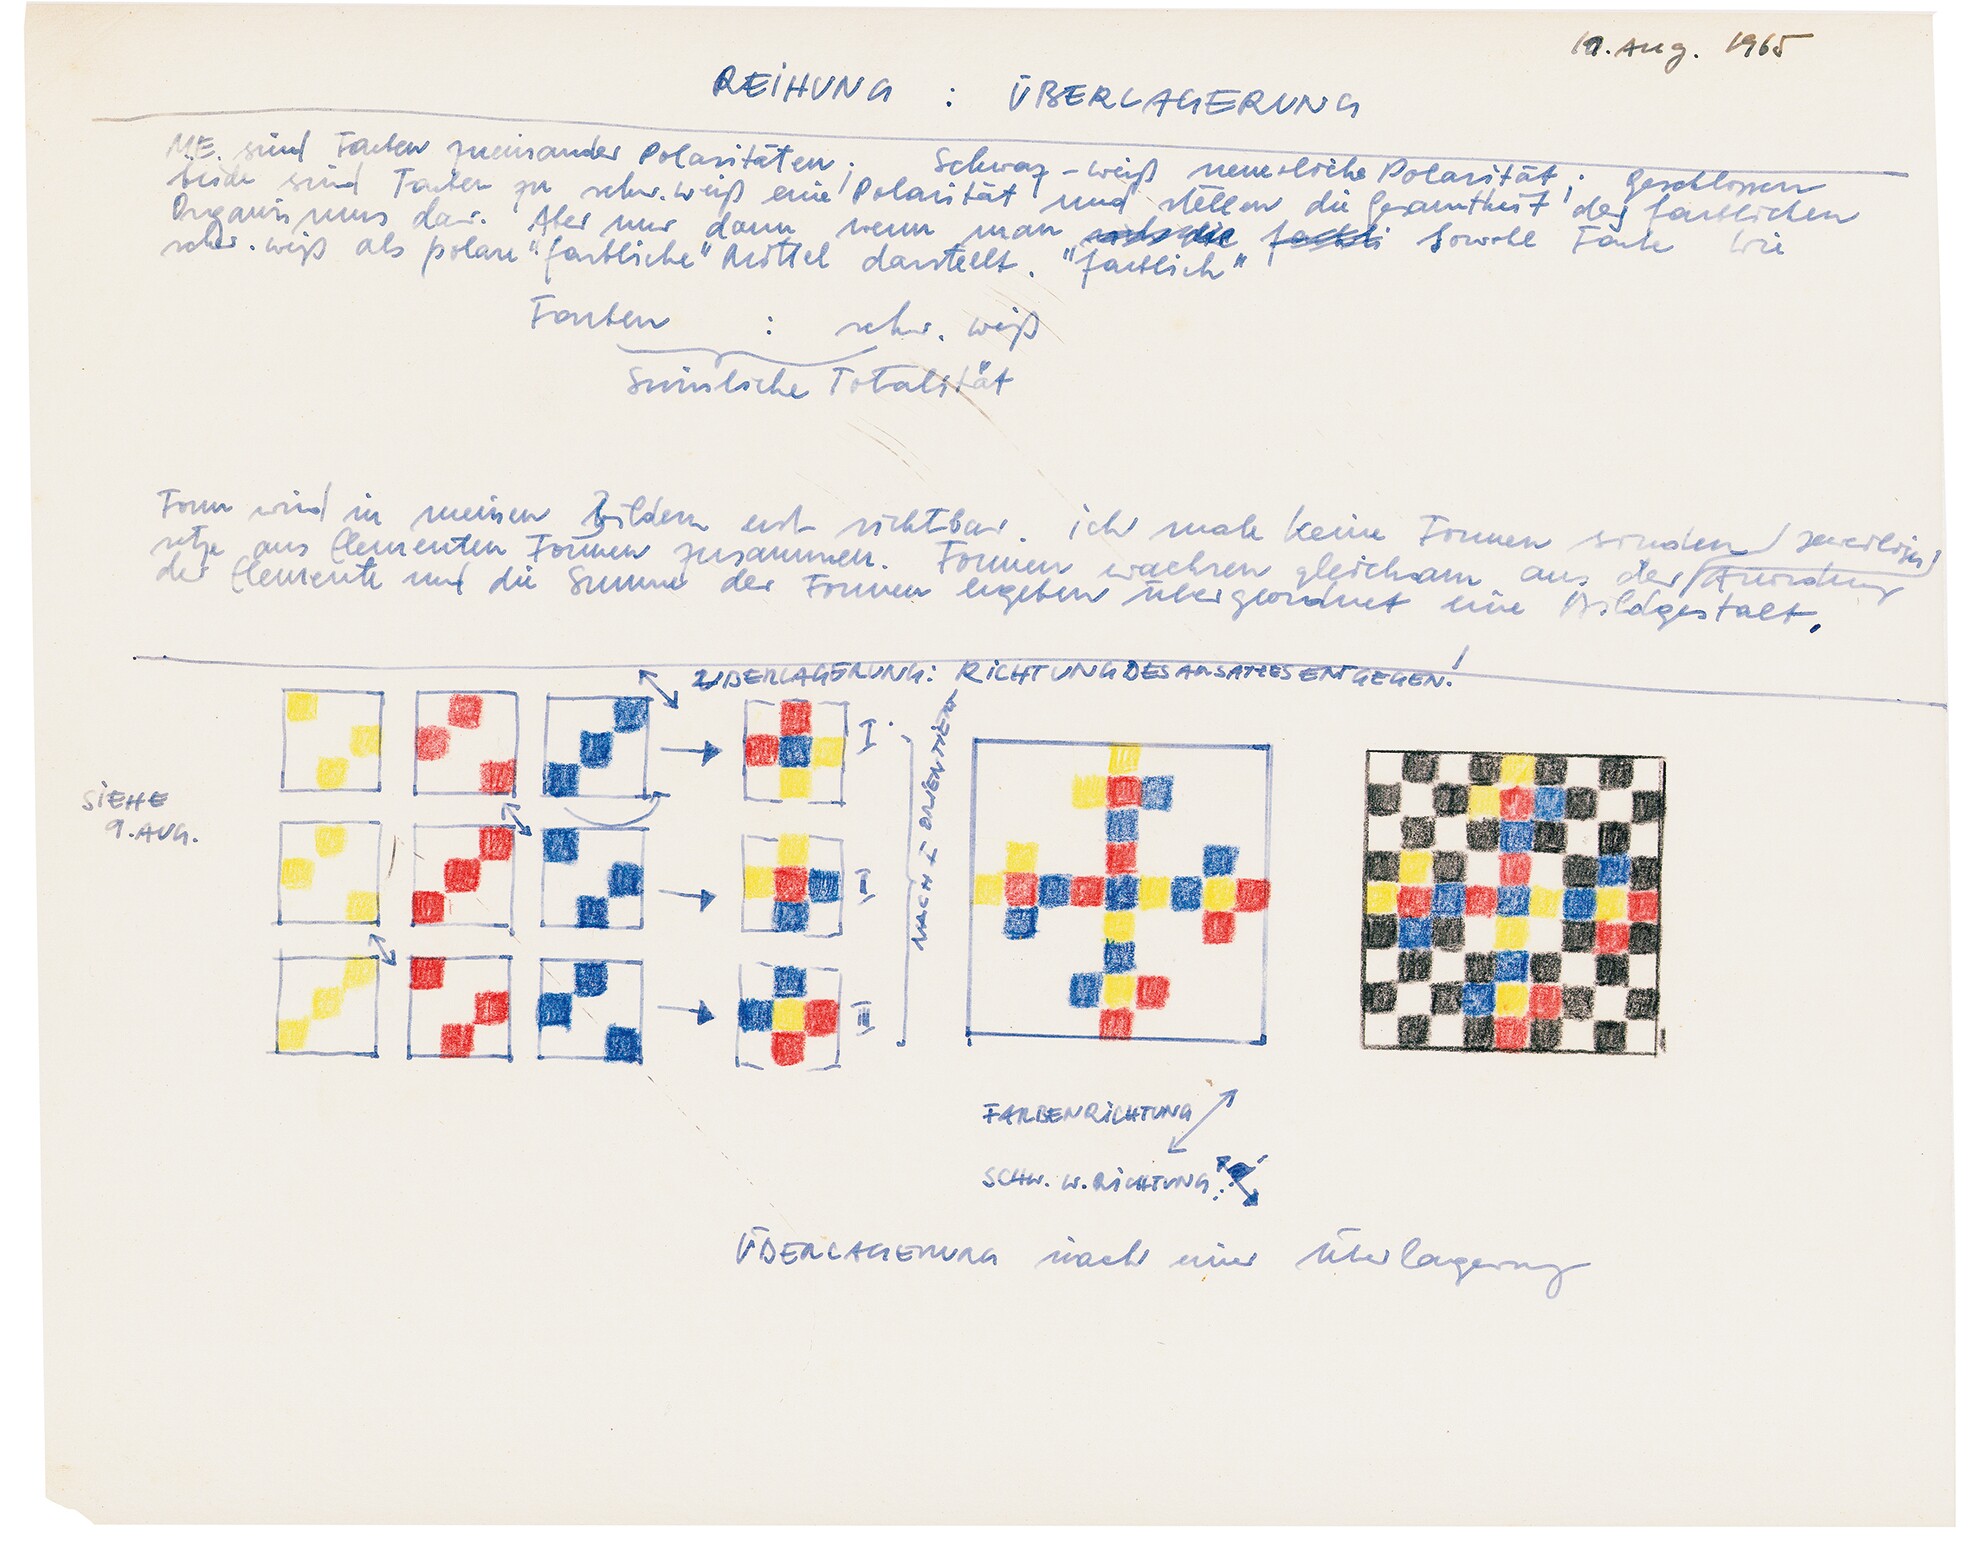 Aug. 1965
REIHUNG : ÜBERLAGERUNG
M.E. sind Farben zueinander Polaritäten; Schwaz-weiß neuerliche Polarität; geschlossen
beide sind Farben zu schw. weiß eine Polarität und stellen die Gesamtheit des farblichen
Organismus dar. Aber nur dann wenn man sowohl Farbe wie
schw. weiß als polare "farbliche" Mittel darstellt. "farblich"
Farben : schw. weiß
Sinnliche Totalität
Form wird in meinen Bildern erst sichtbar. ich male keine Formen sondern
setze aus Elementen Formen zusammen. Formen wachsen gleichsam aus der jeweiligen Anordnung
der Elemente und die Summe der Formen ergeben übergeordnet eine Bildgestalt.
ÜBERLAGERUNG: RICHTUNG DES ANSATZES ENTGEGEN!
SIEHE
9. AUG.
I
I
II
NACH I ORIENTIERT
FARBENRICHTUNG
SCHW. W. RICHTUNG
ÜBERLAGERUNG nach einer Überlagerung